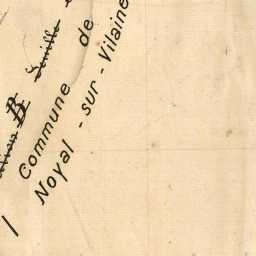 B
Commune de
Noyal-sur-Vilaine